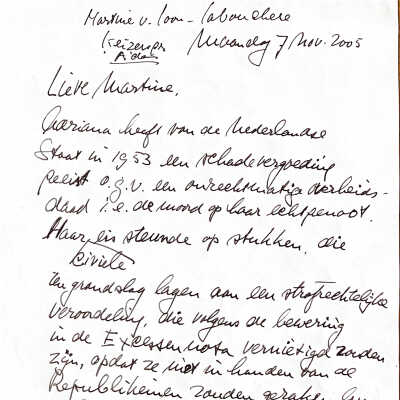 Martine v. Loon-Labouchere
Keizersgr
A'dam
Maandag 7 Nov. 2005
Lieve Martine,
Mariana heeft van de Nederlandse
Staat in 1953 een schadevergoeding
geeist o.g.v. een onrechtmatige overheids-
daad i.e. de moord op haar echtgenoot.
Haar civiele eis steunde op stukken, die
ten grondslag lagen aan een strafrechtelijke
veroordeling, die volgens de bewering
in de Excessennota vernietigd zouden
zijn, opdat ze niet in handen van de
Republikeinen zouden geraken